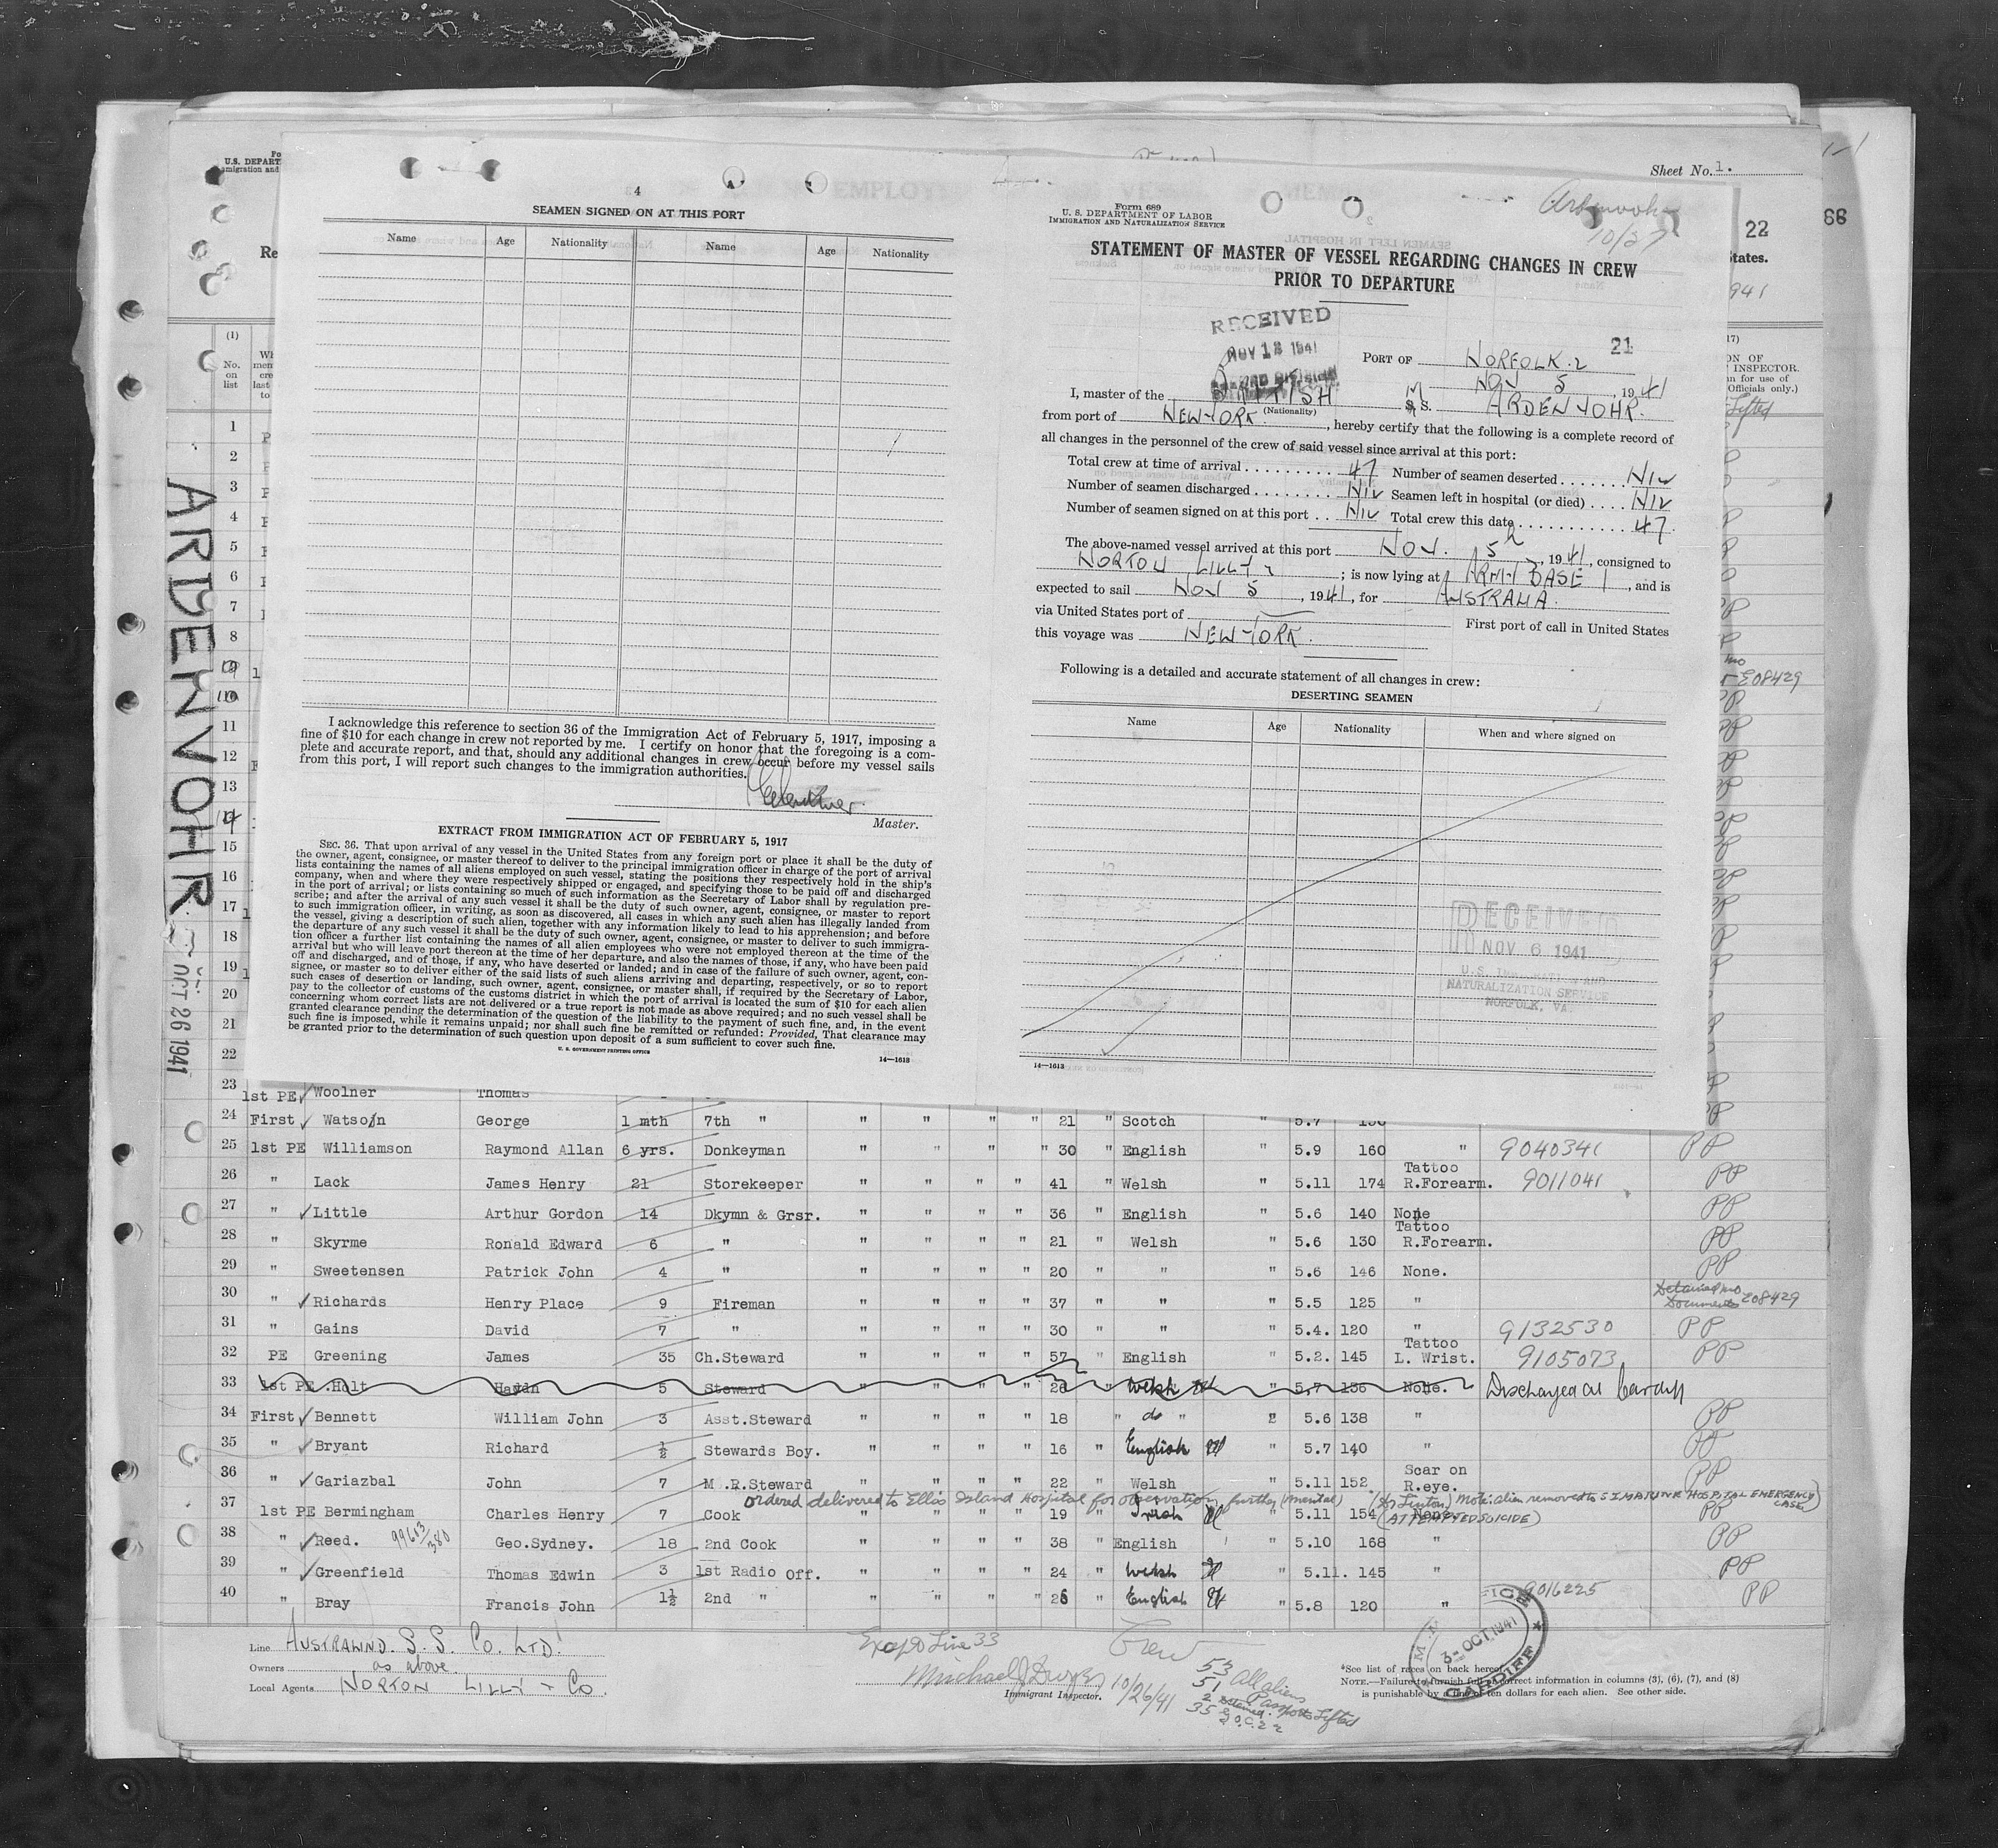 Sheet No. 1.
U.S. DEPART
22
68
tates.
941
ARDENVOHR
OCT 26 1941
4
SEAMEN SIGNED ON AT THIS PORT
Name Age Nationality Name Age Nationality
I acknowledge this reference to section 36 of the Immigration Act of February 5, 1917, imposing a
fine of $10 for each change in crew not reported by me. I certify on honor that the foregoing is a com-
plete and accurate report, and that, should any additional changes in crew occur before my vessel sails
from this port, I will report such changes to the immigration authorities.
Master.
EXTRACT FROM IMMIGRATION ACT OF FEBRUARY 5, 1917
SEC. 36. That upon arrival of any vessel in the United States from any foreign port or place it shall be the duty of
the owner, agent, consignee, or master thereof to deliver to the principal immigration officer in charge of the port of arrival
lists containing the names of all aliens employed on such vessel, stating the positions they respectively hold in the ship's
company, when and where they were respectively shipped or engaged, and specifying those to be paid off and discharged
in the port of arrival; or lists containing so much of such information as the Secretary of Labor shall by regulation pre-
scribe; and after the arrival of any such vessel it shall be the duty of such owner, agent, consignee, or master to report
to such immigration officer, in writing, as soon as discovered, all cases in which any such alien has illegally landed from
the vessel, giving a description of such alien, together with any information likely to lead to his apprehension; and before
the departure of any such vessel it shall be the duty of such owner, agent, consignee, or master to deliver to such immigra-
tion officer a further list containing the names of all alien employees who were not employed thereon at the time of the
arrival but who will leave port thereon at the time of her departure, and also the names of those, if any, who have been paid
off and discharged, and of those, if any, who have deserted or landed; and in case of the failure of such owner, agent, con-
signee, or master so to deliver either of the said lists of such aliens arriving and departing, respectively, or so to report
such cases of desertion or landing, such owner, agent, consignee, or master shall, if required by the Secretary of Labor,
pay to the collector of customs of the customs district in which the port of arrival is located the sum of $10 for each alien
concerning whom correct lists are not delivered or a true report is not made as above required; and no such vessel shall be
granted clearance pending the determination of the question of the liability to the payment of such fine, and, in the event
such fine is imposed, while it remains unpaid; nor shall such fine be remitted or refunded: Provided, That clearance may
be granted prior to the determination of such question upon deposit of a sum sufficient to cover such fine.
U. S. GOVERNMENT PRINTING OFFICE 14—1613
Form 689
U. S. DEPARTMENT OF LABOR
IMMIGRATION AND NATURALIZATION SERVICE
10/27
STATEMENT OF MASTER OF VESSEL REGARDING CHANGES IN CREW
PRIOR TO DEPARTURE
RECEIVED
NOV 13 1941
21
PORT OF NORFOLK
NOV 5, 1941
I, master of the BRITISH M S. ARDENVOHR.
(Nationality)
from port of NEW-YORK., hereby certify that the following is a complete record of
all changes in the personnel of the crew of said vessel since arrival at this port:
Total crew at time of arrival 47 Number of seamen deserted NIL
Number of seamen discharged NIL Seamen left in hospital (or died) NIL
Number of seamen signed on at this port NIL Total crew this date 47.
The above-named vessel arrived at this port NOV. 5th, 1941, consigned to
NORTON LILLY; is now lying at ARMY BASE 1, and is
expected to sail NOV 5, 1941, for AUSTRALIA.
via United States port of First port of call in United States
this voyage was NEW-YORK.
Following is a detailed and accurate statement of all changes in crew:
DESERTING SEAMEN
Name Age Nationality When and where signed on
RECEIVED
NOV 6 1941
NATURALIZATION SERVICE
NORFOLK, VA.
14—1613
(1)
No.
on
list
1
2
3
4
5
6
7
8
9
10
11
12
13
14
15
16
17
18
19
20
21
22
E08429
23 1st PE Woolner Thomas
24 First Watson George 1 mth 7th " " " " " 21 Scotch " 5.7 PP
25 1st PE Williamson Raymond Allan 6 yrs. Donkeyman " " " " 30 " English " 5.9 160 " 9040341 PP
26 " Lack James Henry 21 Storekeeper " " " " 41 " Welsh " 5.11 174 Tattoo R.Forearm. 9011041 PP
27 " Little Arthur Gordon 14 Dkymn & Grsr. " " " " 36 " English " 5.6 140 None PP
28 " Skyrme Ronald Edward 6 " " " " " 21 " Welsh " 5.6 130 Tattoo R.Forearm. PP
29 " Sweetensen Patrick John 4 " " " " " 20 " " " 5.6 146 None. PP
30 " Richards Henry Place 9 Fireman " " " " 37 " " " 5.5 125 " Detained no Documents E08429
31 " Gains David 7 " " " " " 30 " " " 5.4. 120 " 9132530 PP
32 PE Greening James 35 Ch.Steward " " " " 57 " English " 5.2. 145 Tattoo L. Wrist. 9105073 PP
33 1st PE Holt Haydn 5 Steward " " " " 26 " Welsh " 5.7 136 None. Discharged at Cardiff
34 First Bennett William John 3 Asst.Steward " " " " 18 " do " " 5.6 138 " PP
35 " Bryant Richard ½ Stewards Boy. " " " " 16 " English " 5.7 140 " PP
36 " Gariazbal John 7 M.R.Steward " " " " 22 " Welsh " 5.11 152 Scar on R.eye. PP
ordered delivered to Ellis Island Hospital for observation further (mental) (Dr Linton) Note: alien removed to S I MARINE HOSPITAL EMERGENCY CASE
(ATTEMPTED SUICIDE)
37 1st PE Bermingham Charles Henry 7 Cook " " " " 19 " Irish " 5.11 154 None PP
38 " Reed. 99613/380 Geo.Sydney. 18 2nd Cook " " " " 38 " English " 5.10 168 " PP
39 " Greenfield Thomas Edwin 3 1st Radio Off. " " " " 24 " Welsh " 5.11. 145 " PP
40 " Bray Francis John 1½ 2nd " " " " " 26 " English " 5.8 120 " 9016225 PP
Line AUSTRALIND. S. S. Co. LTD.
Owners as above.
Local Agents NORTON LILLY + Co.
Except Line 33
10/26/41
Immigrant Inspector.
Crew
53 All aliens
51 Passports Lifted
2 Detained.
35
3- OCT 1941
CARDIFF
*See list of races on back hereof
NOTE.—Failure to furnish full or correct information in columns (3), (6), (7), and (8)
is punishable by a fine of ten dollars for each alien. See other side.